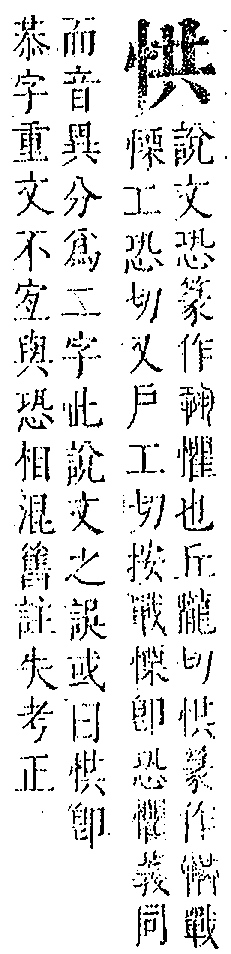 㤨
說文恐篆作懼也丘隴切㤨篆作戰
慄工恐切又戶工切按戰慄卽恐懼義同
而音異分爲二字此說文之誤或曰㤨卽
恭字重文不宐與恐相混舊註失考正